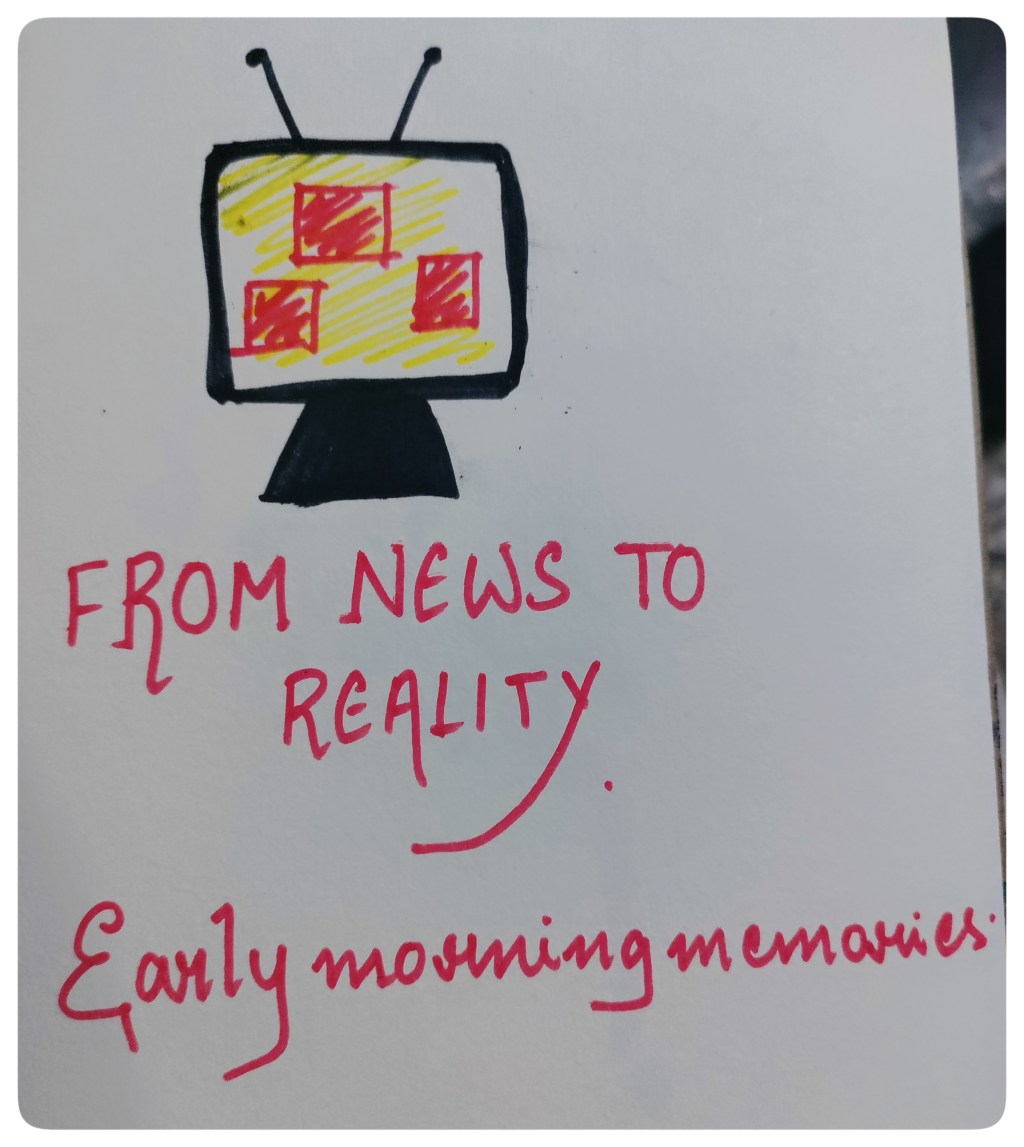 FROM NEWS TO
REALITY.
Early morning memories.